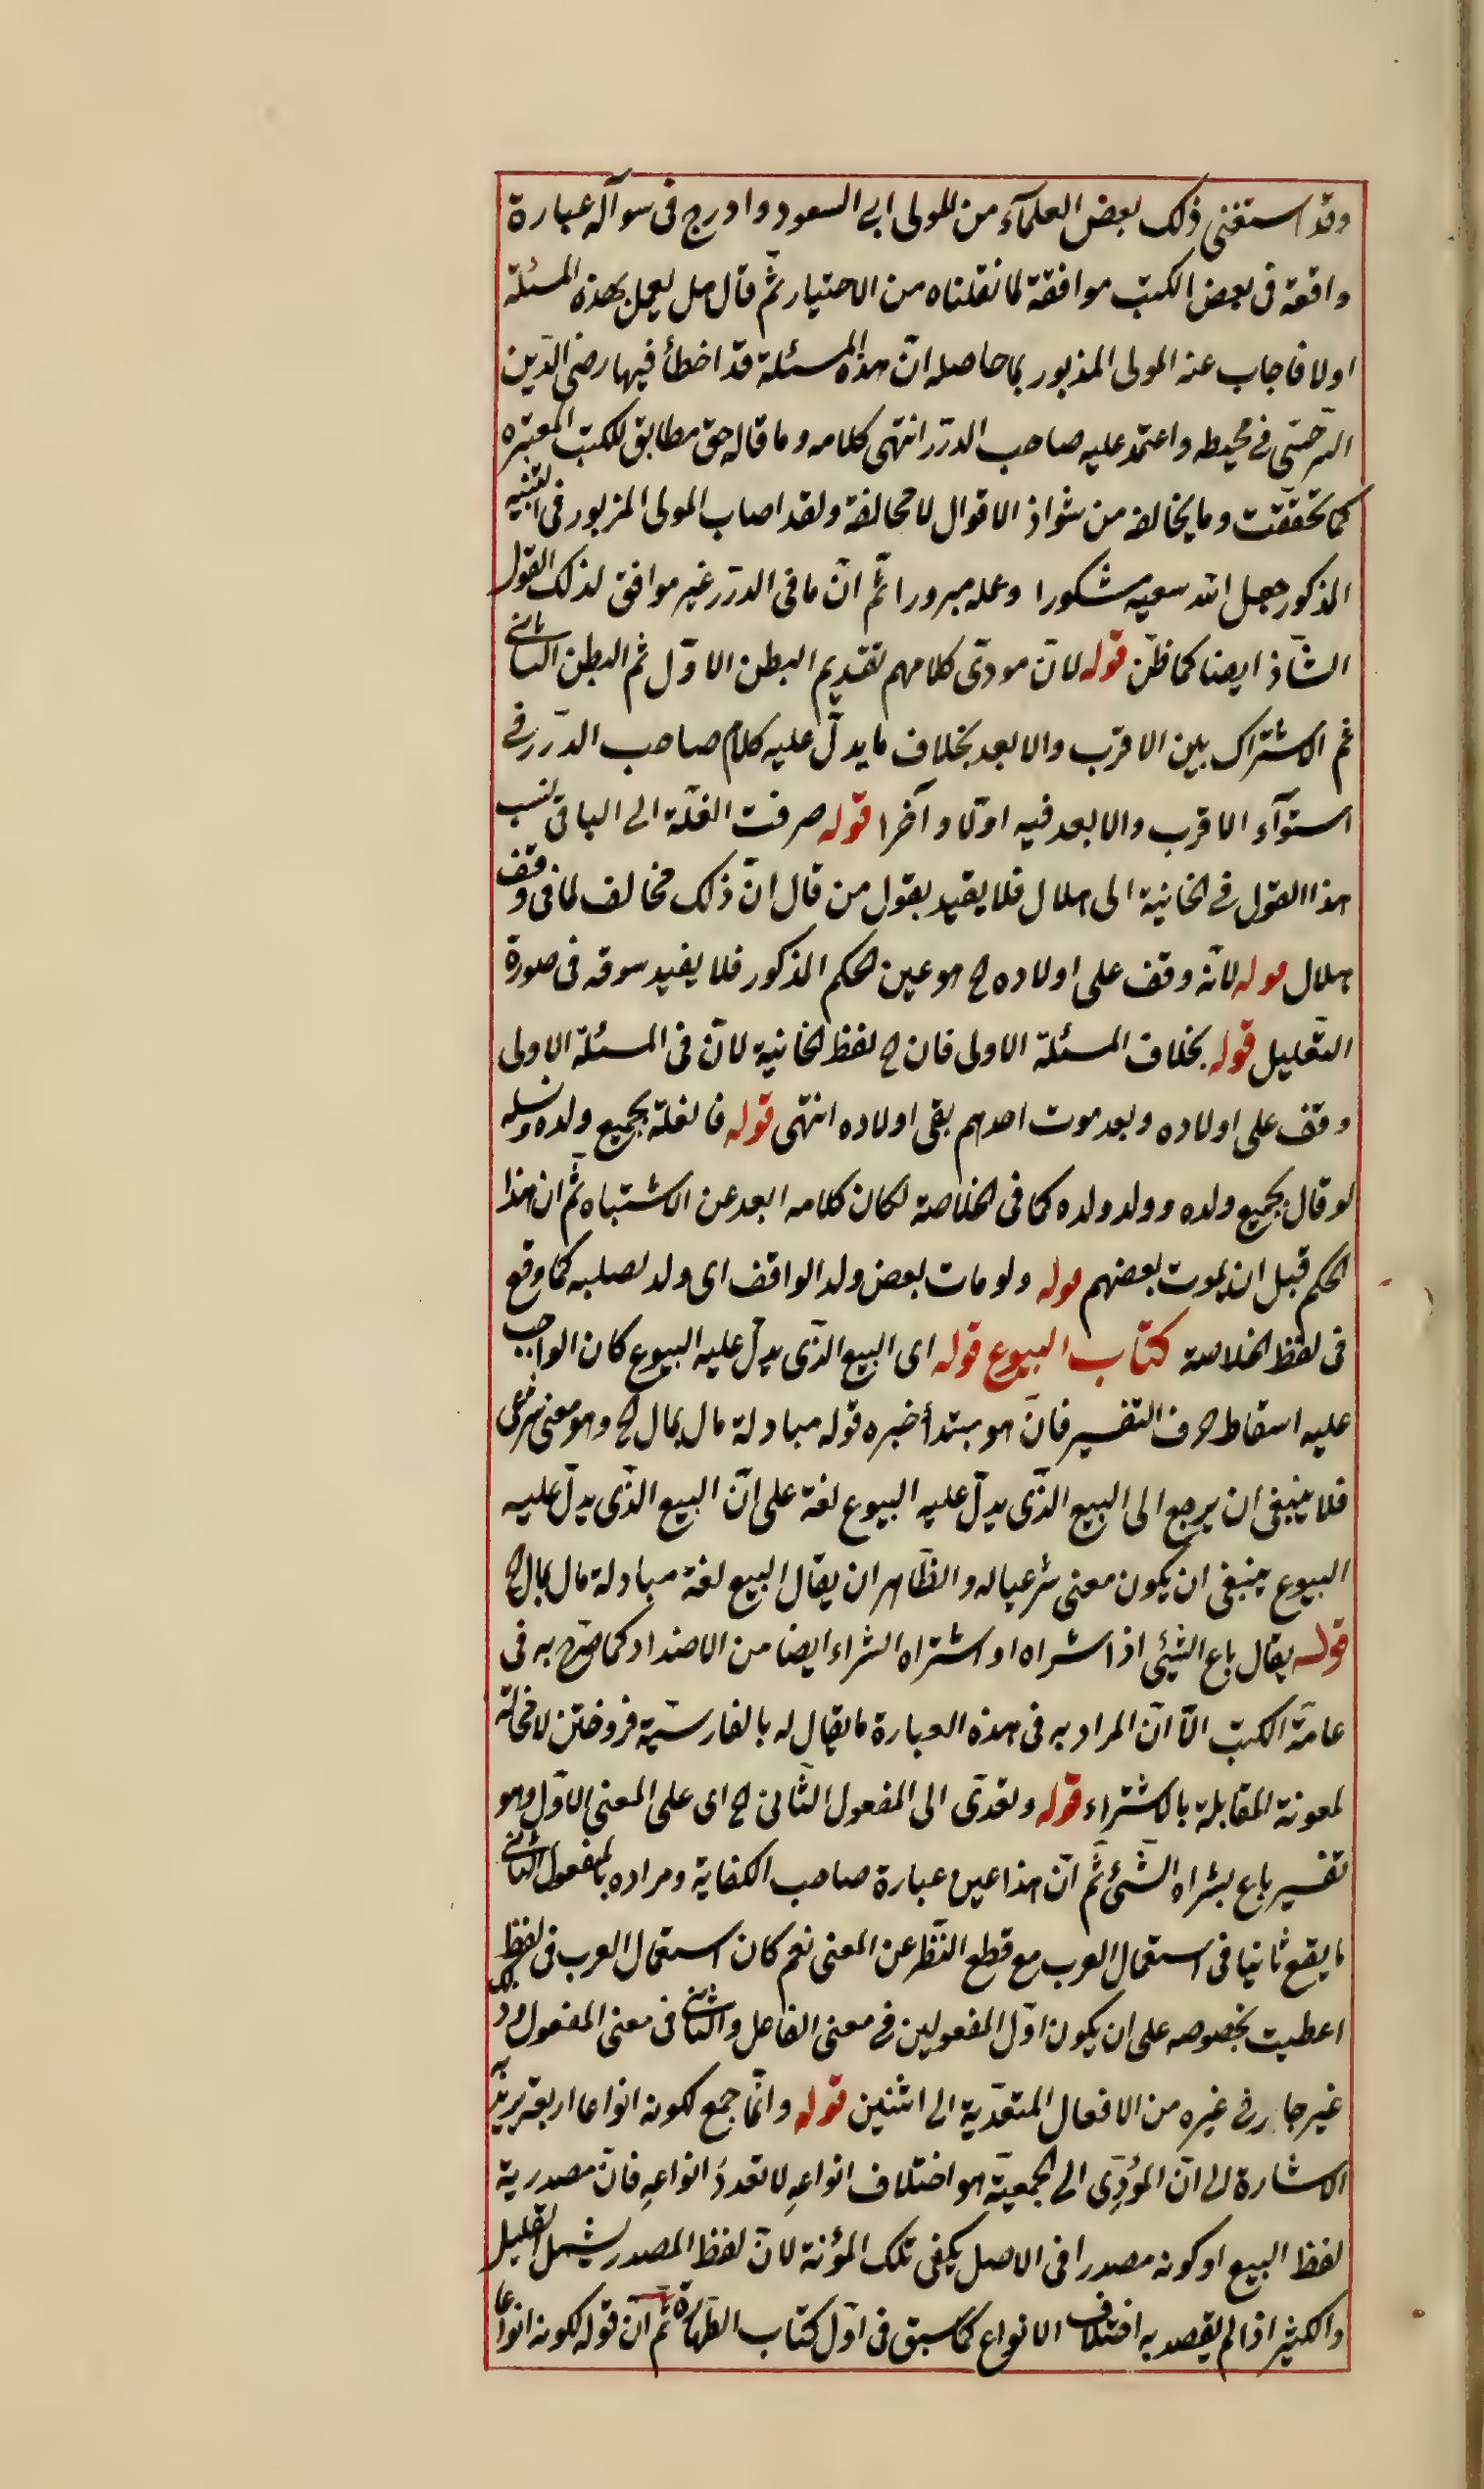 وقد استفتى ذلك بعض العلمآء من المولى ابى السعود وادرج فى سوآله عبارة
واقعة فى بعض الكتب موافقة لما نقلناه من الاختيار ثم قال هل يعمل بهذه المسئلة
اولا فاجاب عنه المولى المذبور بما حاصله انّ هذه المسئلة قد اخطأ فيها رضى الدين
السرخسى فى محيطه واعتمد عليه صاحب الدرر انتهى كلامه وما قاله حق مطابق للكتب المعتبره
كما تحققت وما يخالفه من شواذ الاقوال لا محالفة ولقد اصاب المولى المزبور فى التنبيه
المذكور جعل الله سعيه مشكورا وعمله مبرورا ثم انّ ما فى الدرر غير موافق لذلك القول
الشاذ ايضا كما ظنّ قوله لانّ مودّى كلامهم تقديم البطن الاوّل ثم البطن الثانى
ثم الاشتراك بين الاقرب والابعد بخلاف ما يدلّ عليه كلام صاحب الدرر فى
استوآء الاقرب والابعد فيه اوّلا وآخرا قوله صرفت الغلّة الى الباقى نسب
هذا القول فى الخانية الى هلال فلا يقيد بقول من قال انّ ذلك مخالف لما فى وقف
هلال قوله لانّه وقف على اولاده ح هو عين الحكم المذكور فلا يفيد سوقه فى صورة
التعليل قوله بخلاف المسئلة الاولى فان ح لفظ الخانية لانّ فى المسئلة الاولى
وقف على اولاده وبعد موت احدهم بقى اولاده انتهى قوله فالغلة لجميع ولده ونسله
لو قال لجميع ولده وولد ولده كما فى الخلاصة لكان كلامه ابعد عن الاشتباه ثم ان هذا
الحكم قبل ان يموت بعضهم قوله ولو مات بعض ولد الواقف اى ولد لصلبه كما وقع
فى لفظ الخلاصة كتاب البيوع قوله اى البيع الذى يدلّ عليه البيوع كان الواجب
عليه اسقاط حرف التفسير فانّ هو مبتدأ خبره قوله مبادلة مال بمال ح وهو معنى شرعى
فلا ينبغى ان يرجع الى البيع الذّى يدلّ عليه البيوع لغة على انّ البيع الذّى يدلّ عليه
البيوع ينبغى ان يكون معنى شرعيا له والظاهر ان يقال البيع لغة مبادلة مال بمال ح
قوله يقال باع الشيئ اذا شراه او اشتراه الشراء ايضا من الاضداد كما صرّح به فى
عامّة الكتب الّا انّ المراد به فى هذه العبارة ما يقال له بالفارسيّة فروختن لا محالة
لمعونة المقابلة بالاشتراء قوله وتعدّى الى المفعول الثانى ح اى على المعنى الاوّل وهو
تفسير باع بشراه الشئ ثم انّ هذا عين عبارة صاحب الكفاية ومراده بالمفعول الثانى
ما يقع ثانيا فى استعمال العرب مع قطع النظر عن المعنى نعم كان استعمال العرب فى لفظ
اعطيت بخصوصه على ان يكون اوّل المفعولين فى معنى الفاعل والثانى فى معنى المفعول وذلك
غير جار فى غيره من الافعال المتعدّية الى اثنين قوله وانّما جمع لكونه انواعا اربعة يريد به
الاشارة الى انّ المؤدّى الى الجمعيّة هو اختلاف انواعهِ لا تعددُ انواعهِ فانّ مصدرية
لفظ البيع او كونه مصدرا فى الاصل يكفى تلك المؤنة لانّ لفظ المصدر يشمل القليل
والكثير اذا لم يقصد به اختلاف الانواع كما سبق فى اوّل كتاب الطهارة ثم انّ قوله لكونه انواعا